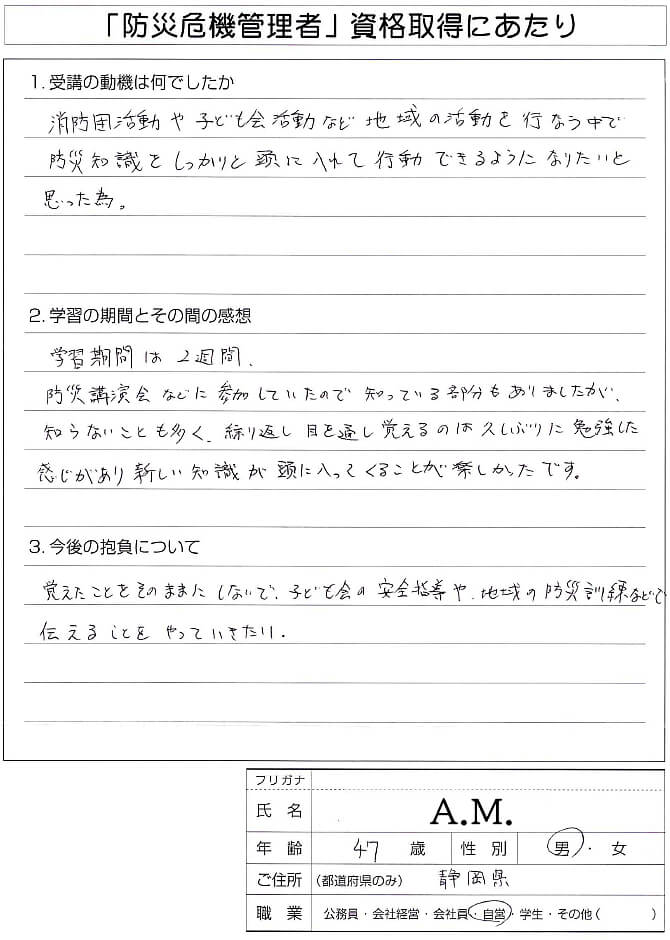 「防災危機管理者」資格取得にあたり
1. 受講の動機は何でしたか
消防団活動や子ども会活動など地域の活動を行なう中で
防災知識をしっかりと頭に入れて行動できるようになりたいと
思った為。
2. 学習の期間とその間の感想
学習期間は2週間、
防災講演会などに参加していたので知っている部分もありましたが、
知らないことも多く、繰り返し目を通し覚えるのは久しぶりに勉強した
感じがあり新しい知識が頭に入ってくることが楽しかったです。
3. 今後の抱負について
覚えたことをそのままにしないで、子ども会の安全指導や、地域の防災訓練などで
伝えることをやっていきたい。
フリガナ
氏 名 A.M.
年 齢 47 歳 性 別 男・女
ご住所 (都道府県のみ) 静岡県
職 業 公務員・会社経営・会社員・自営・学生・その他( )